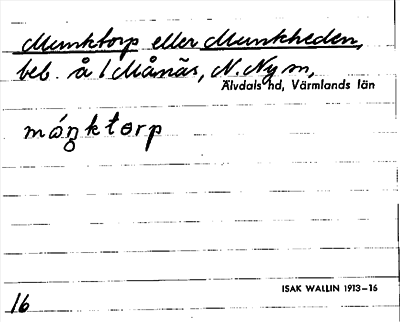 Munktorp eller Munkheden,
beb. å 1 Månäs, N. Ny sn,
Älvdals hd, Värmlands län
móŋktorp
ISAK WALLIN 1913–16
16